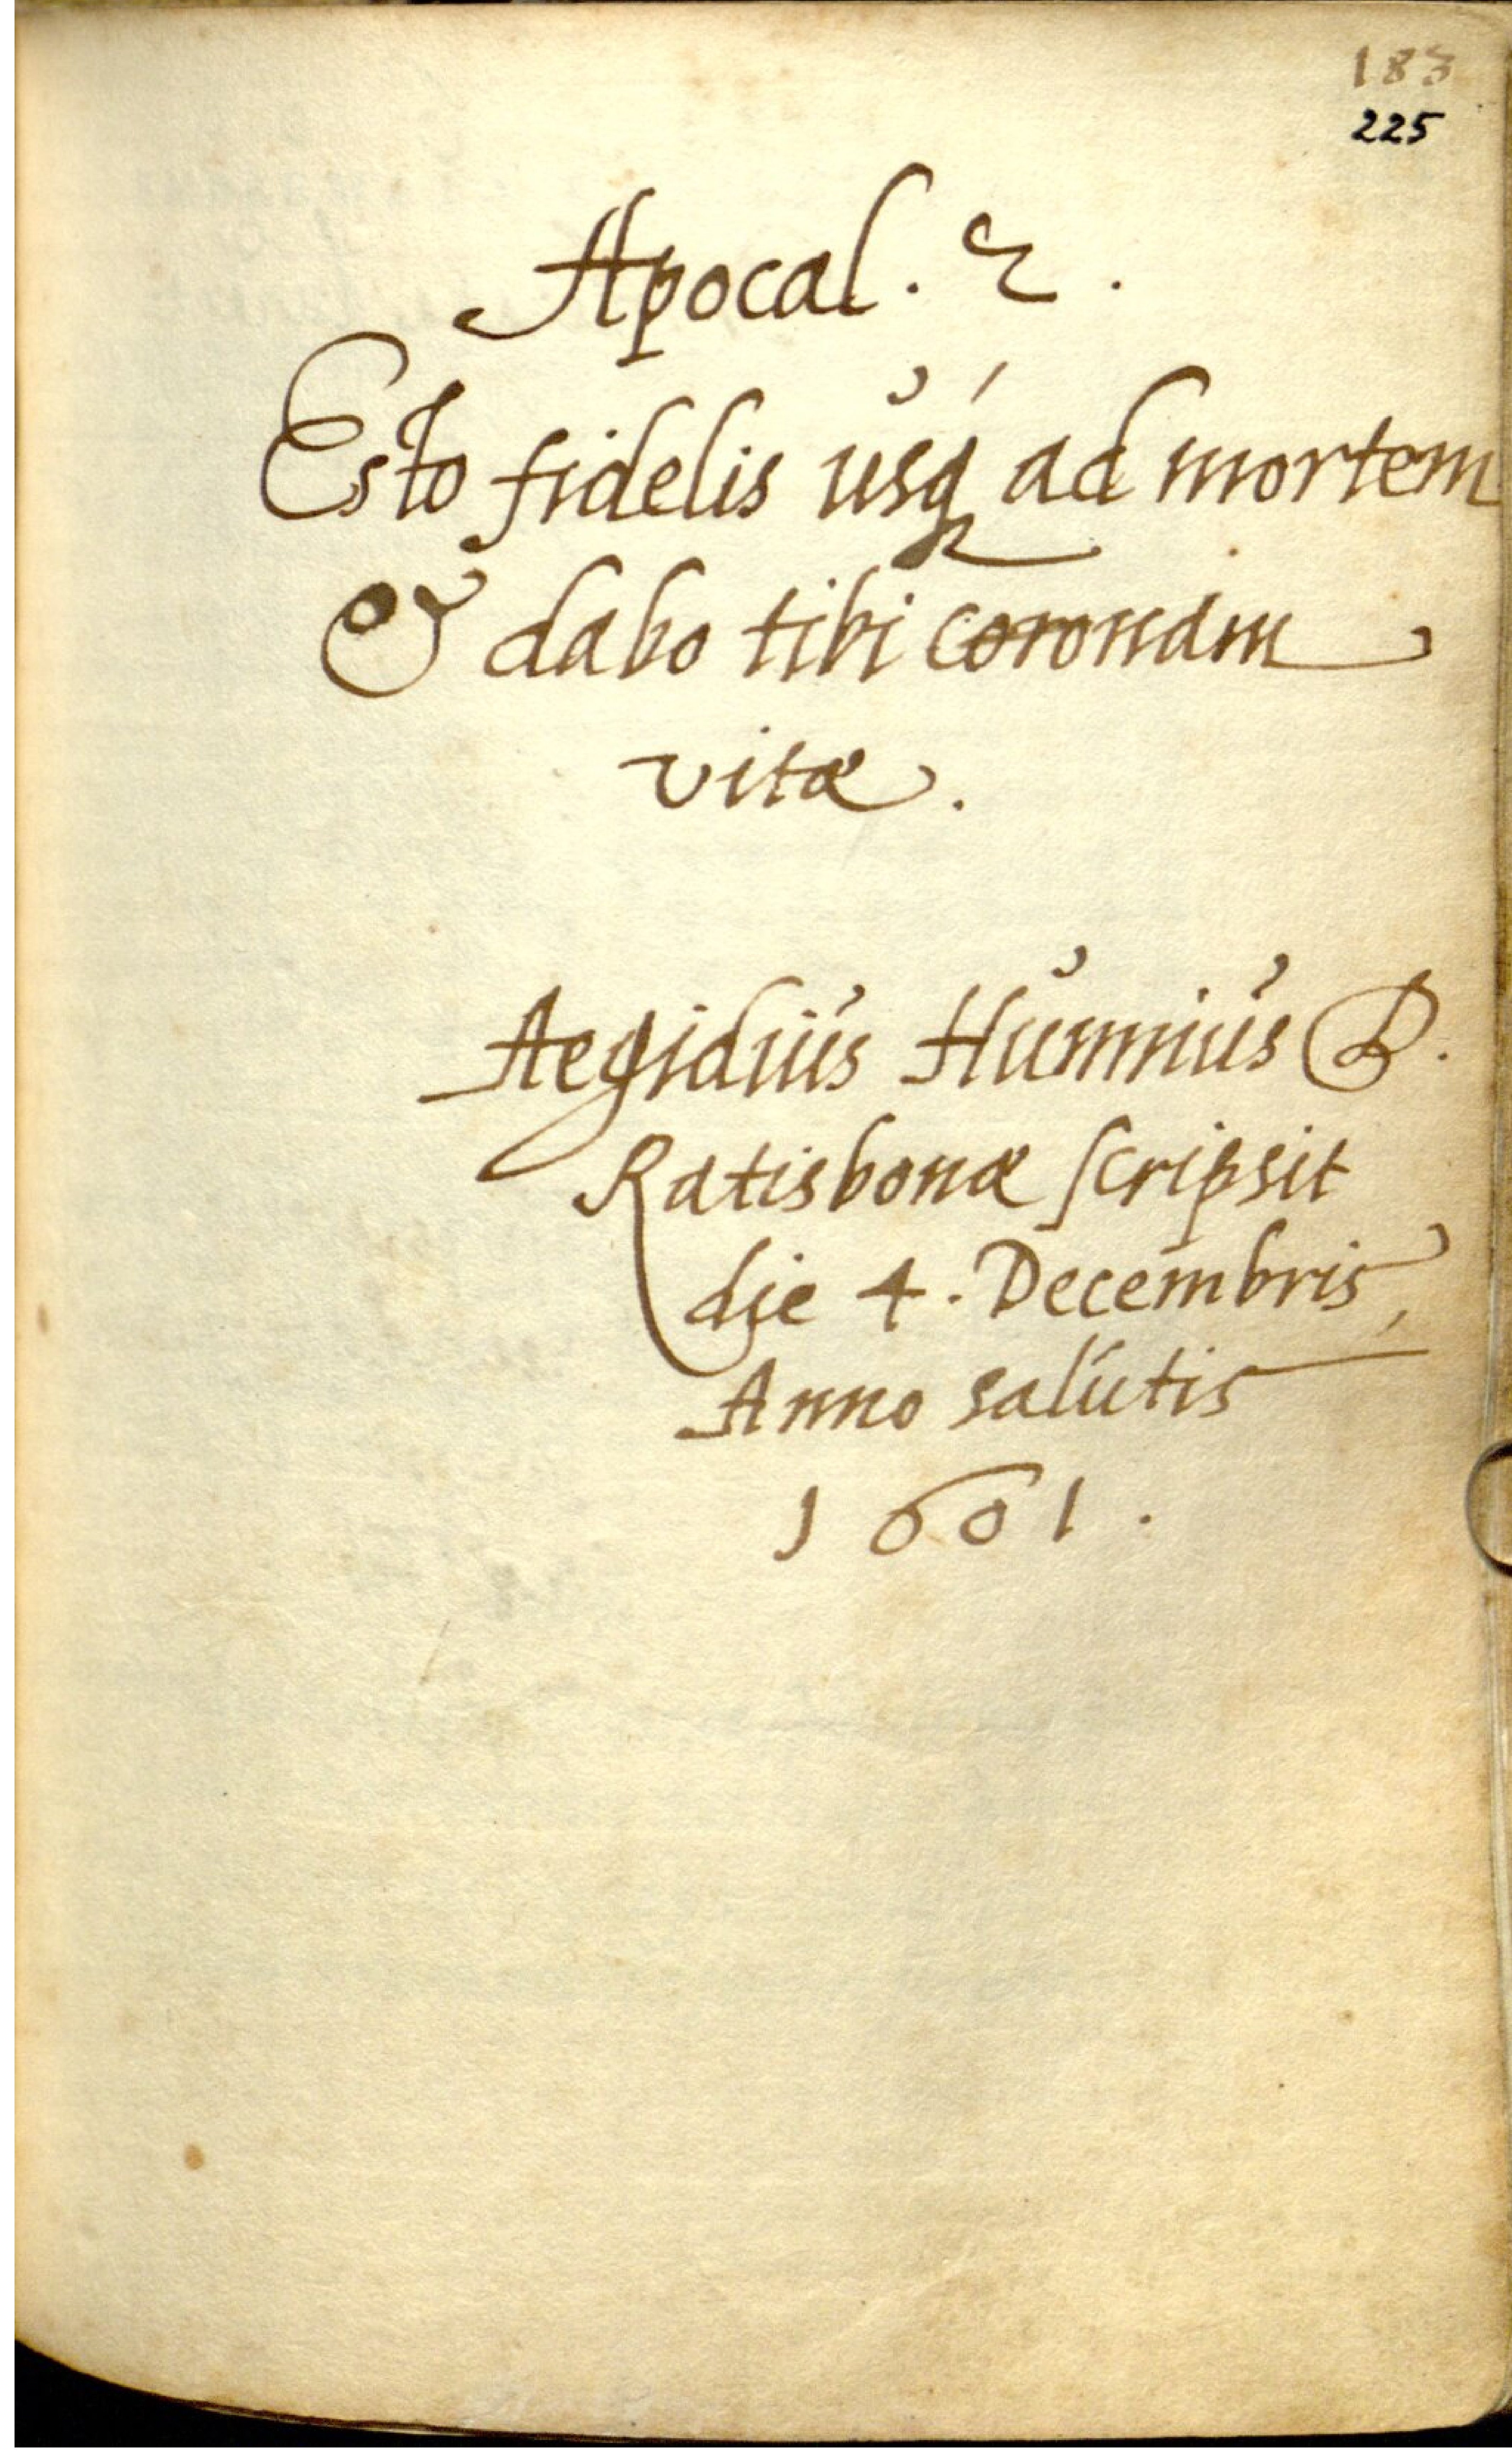 183
225
Apocal. 2.
Esto fidelis usq́ ad mortem
& dabo tibi coronam
vitæ.
Aegidius Hunnius D.
Ratisbonæ scripsit
die 4. Decembris,
Anno salutis
1601.